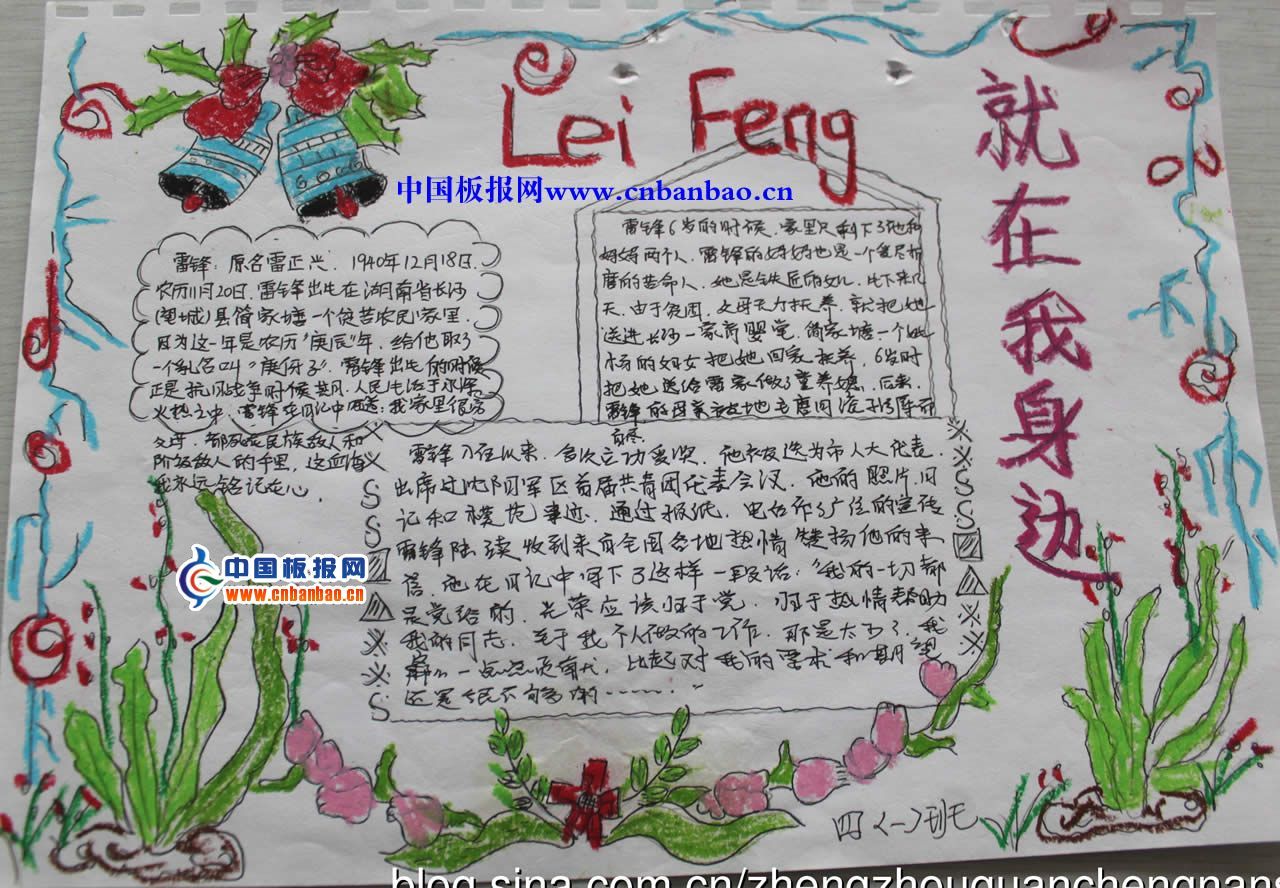 Lei Feng
就在我身边
中国板报网www.cnbanbao.cn
雷锋,原名雷正兴,1940年12月18日,
农历11月20日,雷锋出生在湖南省长沙
(望城)县简家塘一个贫苦农民家里.
因为这一年是农历"庚辰"年,给他取了
一个乳名叫"庚伢子".雷锋出生的时候
正是抗日战争时候 人民生活于水深
火热之中,雷锋在日记中 我家里很穷
父母 都死在民族敌人和
阶级敌人的手里,这血海
我永远铭记在心.
雷锋6岁的时候,家里只剩下了他和
妈妈两个人.雷锋的妈妈也是一个受尽折
磨的苦命人.她是铁匠的女儿,生下来几
天,由于贫困,父母无力抚养,就把她
送进长沙一家育婴堂,简家塘一个
杨的妇女把她 回家抚养,6岁时
把她送给雷家做了童养媳.后来,
雷锋的母亲被地主
雷锋入伍以来,多次立功受奖.他被选为市人大代表,
出席过沈阳军区首届共青团代表会议.他的照片,日
记和模范事迹,通过报纸,电台作了广泛的宣传
雷锋陆续收到来自全国各地热情赞扬他的来
信.他在日记中写下了这样一段话:"我的一切都
是党给的,光荣应该归于党,归于热情帮助
我的同志.至于我个人做的工作,那是太少了.我
一点点贡献,比起对我的要求和期望
还是很不够的……"
中国板报网
www.cnbanbao.cn
四〈一〉班
blog.sina.com.cn/zhengzhouguanchengnang